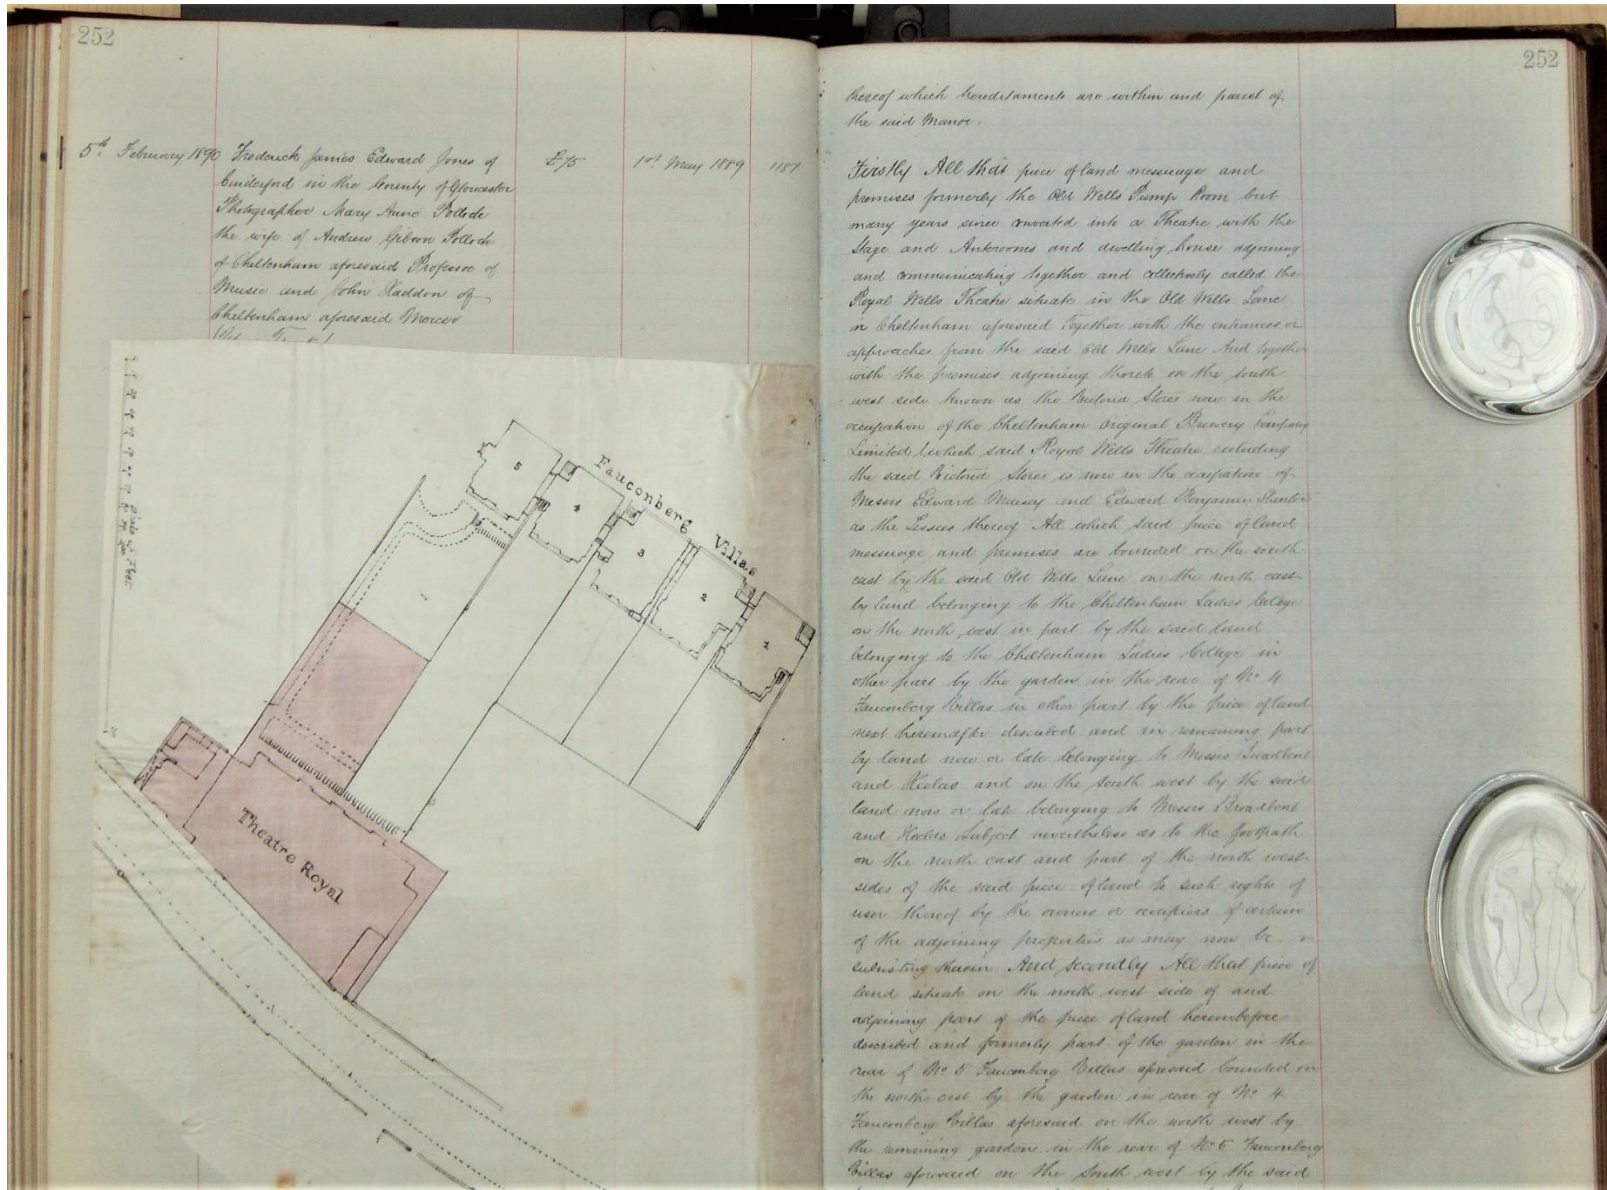 252
5th February 1890
Frederick James Edward Jones of
Cinderford in the County of Gloucester
Photographer Mary Anne Pollock
the wife of Andrew Gibson Pollock
of Cheltenham aforesaid Professor of
Music and John Haddon of
Cheltenham aforesaid Mercer
£75
1st May 1889
1187
Fauconberg Villas
5
4
3
2
1
Theatre Royal
252
thereof which hereditaments are within and parcel of
the said Manor.
Firstly All that piece of land messuage and
premises formerly the Old Wells Pump Room but
many years since converted into a Theatre with the
Stage and Anterooms and dwelling house adjoining
and communicating together and collectively called the
Royal Wells Theatre situate in the Old Wells Lane
in Cheltenham aforesaid Together with the entrances or
approaches from the said Old Wells Lane And together
with the premises adjoining thereto on the south
west side known as the Victoria Stores now in the
occupation of the Cheltenham Original Brewery Company
Limited (which said Royal Wells Theatre excluding
the said Victoria Stores is now in the occupation of
Messrs Edward and Edward Benjamin
as the Lessees thereof All which said piece of land
messuage and premises are bounded on the south
east by the said Old Wells Lane on the north east
by land belonging to the Cheltenham Ladies College
on the north west in part by the said land
belonging to the Cheltenham Ladies College in
other part by the garden in the rear of No 4
Fauconberg Villas in other part by the piece of land
next hereinafter described and in remaining part
by land now or late belonging to Messrs Broadbent
and and on the south west by the said
land now or late belonging to Messrs Broadbent
and Subject nevertheless as to the footpath
on the north east and part of the north west
sides of the said piece of land to such rights of
user thereof by the owners or occupiers of certain
of the adjoining properties as may now be
subsisting therein And secondly All that piece of
land situate on the north west side of and
adjoining part of the piece of land hereinbefore
described and formerly part of the garden in the
rear of No 5 Fauconberg Villas aforesaid bounded on
the north east by the garden in rear of No 4
Fauconberg Villas aforesaid on the north west by
the remaining garden in the rear of No 5 Fauconberg
Villas aforesaid on the South west by the said